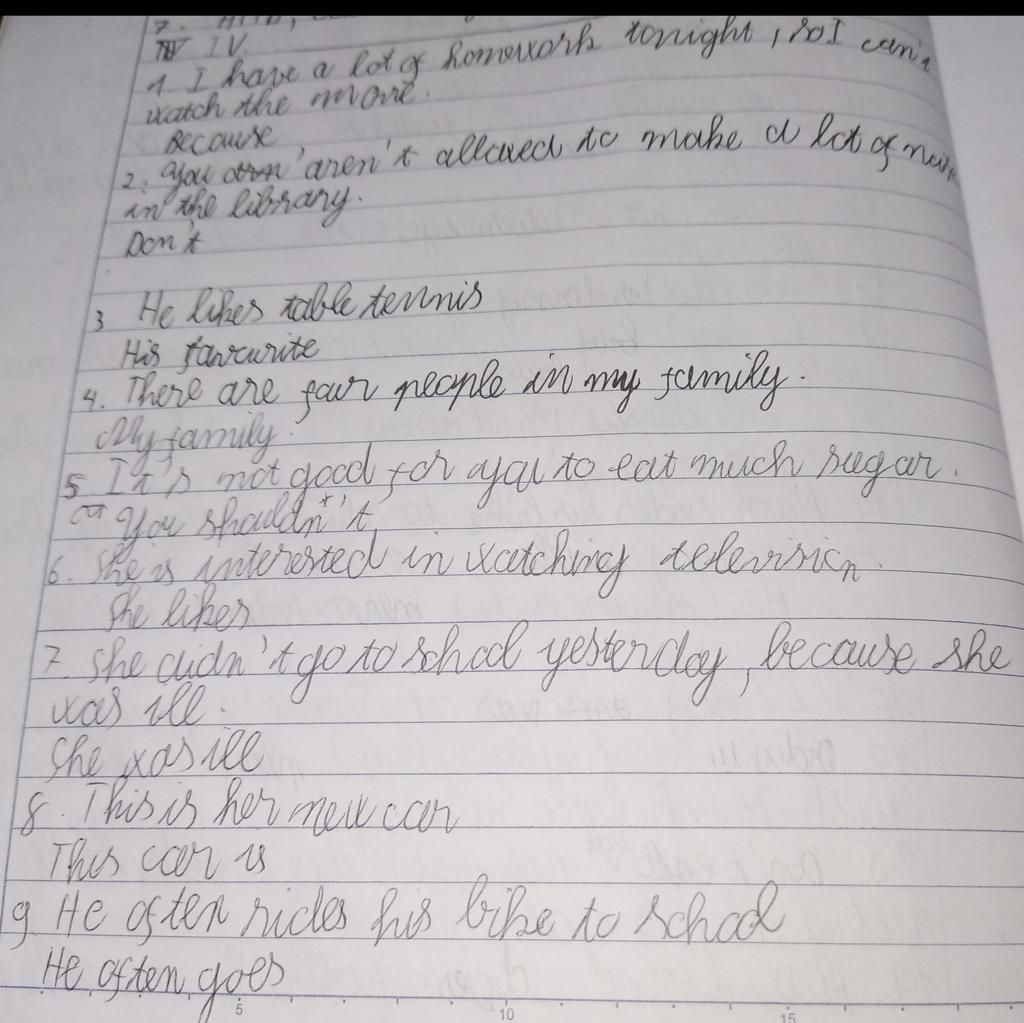 7.
IV.
1. I have a lot of homework tonight, so I can't
watch the movie.
Because
2. You aren't allowed to make a lot of
in the library.
Don't
3 He likes table tennis
His favourite
4. There are four people in my family.
My family
5. It's not good for you to eat much sugar.
You shouldn't
6. She is interested in watching television.
She likes
7. She didn't go to school yesterday, because she
was ill.
She was ill
8. This is her new car
This car is
9. He often rides his bike to school
He often goes
5 10 15